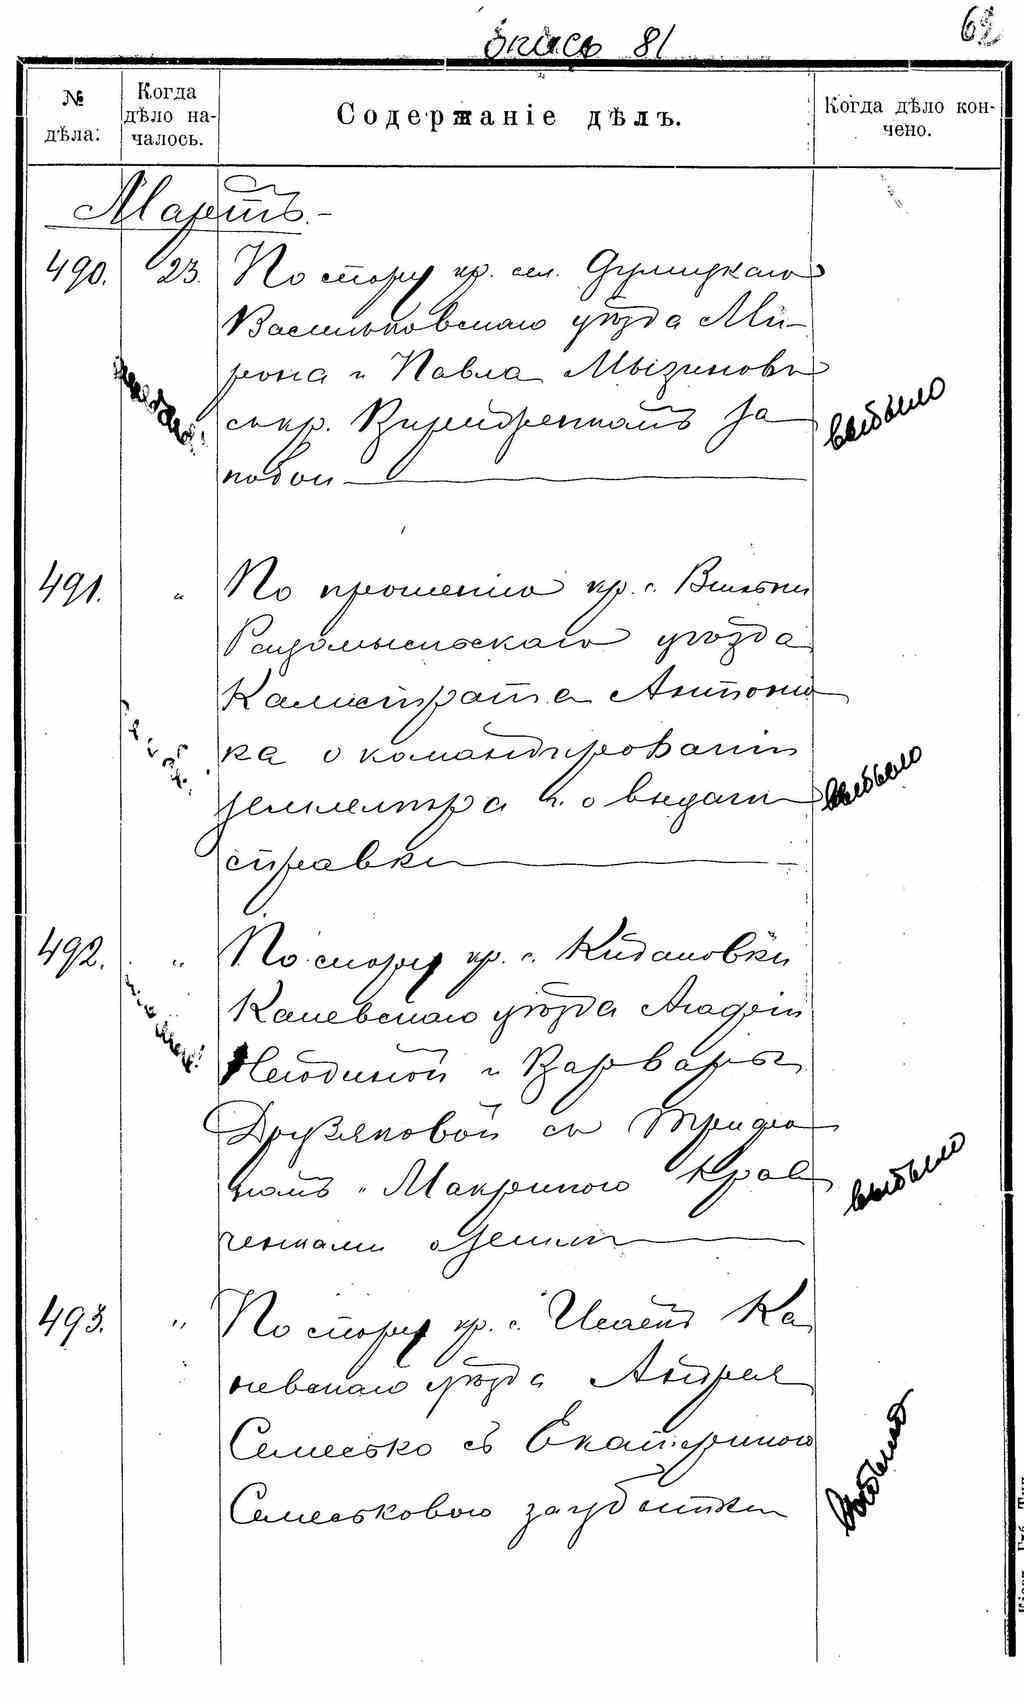 Опись 81
№ дѣла:
Когда дѣло началось.
Содержаніе дѣлъ.
Когда дѣло кончено.
Мартъ.
490. 23. По спору кр. сел.
Васильковскаго уѣзда Ми-
рона и Павла Мызиновы
съ кр. за
побои
выбыло
491. " По прошенію кр. с.
Радомысльскаго уѣзда
Калистрата Антоню
ка о командированіи
землемѣра и о выдачи
справки
выбыло
492. " По спору кр. с. Кидановки
Каневскаго уѣзда Агафіи
и Варвары
Друзяковой съ Трифо
номъ и Макриною Крав
ченками о земли
выбыло
493. " По спору кр. с. Ка
невскаго уѣзда Андрея
Семесько съ Екатериною
Семеськовою за убытки
выбыло